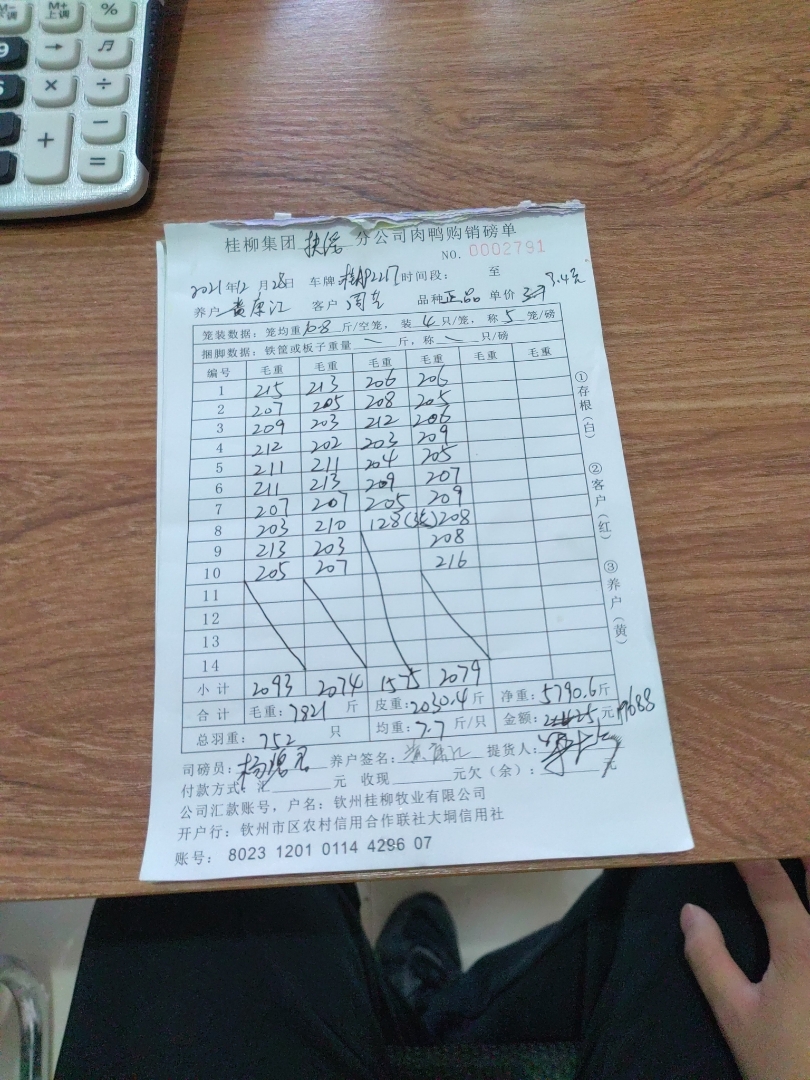 M- 下调 M+ 上调 %
9 → ♬
× ÷
+ −
=
桂柳集团 分公司肉鸭购销磅单
NO. 0002791
2021年12月28日 车牌 时间段： 至
养户 黄康江 客户 周 品种 正品 单价 3.4元
笼装数据：笼均重 10.8 斤/空笼，装 4 只/笼，称 5 笼/磅
捆脚数据：铁筐或板子重量 \ 斤，称 \ 只/磅
编号 毛重 毛重 毛重 毛重 毛重 毛重
1 215 213 206 206
2 207 205 208 205
3 209 203 212 206
4 212 202 203 209
5 211 211 204 205
6 211 213 209 207
7 207 207 205 209
8 203 210 128 208
9 213 203 208
10 205 207 216
11
12
13
14
小计 2093 2074 1575 2079
合计 毛重：7821 斤 皮重：2030.4斤 净重：5790.6斤
总羽重： 752 只 均重：7.7 斤/只 金额： 元 19688
司磅员： 养户签名： 提货人：
付款方式：汇 元 收现 元欠（余）： 元
公司汇款账号，户名：钦州桂柳牧业有限公司
开户行：钦州市区农村信用合作联社大垌信用社
账号： 8023 1201 0114 4296 07
①存根（白） ②客户（红） ③养户（黄）